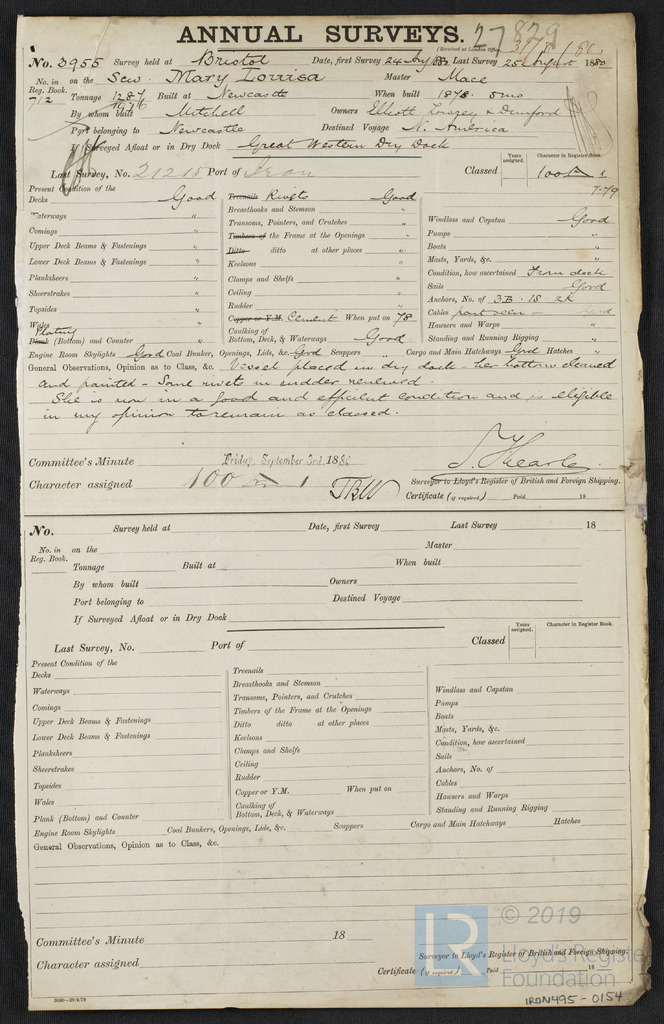 ANNUAL SURVEYS. 27829
(Received at London Office,
No. 3955 Survey held at Bristol Date, first Survey 24 Last Survey 25 August 1880
No. in Reg. Book. on the Scw. Mary Louisa Master Mace
712 Tonnage 1287 1976 Built at Newcastle When built 1878. 5mo
By whom built Mitchell Owners Elliott Lowrey & Dunford
Port belonging to Newcastle Destined Voyage N. America
If Surveyed Afloat or in Dry Dock Great Western Dry Dock
Last Survey, No. 21215 Port of Iron Classed Years assigned. Character in Register Book. 100A 1
7.79
Present Condition of the
Decks Good Treenails Rivets Good
Waterways " Breasthooks and Stemson " Windlass and Capstan Good
Comings " Transoms, Pointers, and Crutches " Pumps "
Upper Deck Beams & Fastenings " Timbers of the Frame at the Openings " Boats "
Lower Deck Beams & Fastenings " Ditto ditto at other places " Masts, Yards, &c. "
Planksheers " Keelsons " Condition, how ascertained From deck
Sheerstrakes " Clamps and Shelfs " Sails Good
Topsides " Ceiling " Anchors, No. of 3B. 1S. 2K
Wales Rudder " Cables part seen - Good
Plating Copper or Y.M. Cement When put on 78 Hawsers and Warps "
Plank (Bottom) and Counter " Caulking of Bottom, Deck, & Waterways Good Standing and Running Rigging "
Engine Room Skylights Good Coal Bunker, Openings, Lids, &c. Good Scuppers " Cargo and Main Hatchways Good Hatches "
General Observations, Opinion as to Class, &c. Vessel placed in dry dock - her bottom cleaned
and painted - Some rivets in rudder renewed.
She is now in a good and efficient condition and is eligible
in my opinion to remain as classed.
Committee's Minute Friday, September 3rd, 1880
Character assigned 100 A 1 Surveyor to Lloyd's Register of British and Foreign Shipping.
Certificate (if required) Paid 18
No. Survey held at Date, first Survey Last Survey 18
No. in Reg. Book. on the Master
Tonnage Built at When built
By whom built Owners
Port belonging to Destined Voyage
If Surveyed Afloat or in Dry Dock
Last Survey, No. Port of Classed Years assigned. Character in Register Book.
Present Condition of the
Decks Treenails
Waterways Breasthooks and Stemson Windlass and Capstan
Comings Transoms, Pointers, and Crutches Pumps
Upper Deck Beams & Fastenings Timbers of the Frame at the Openings Boats
Lower Deck Beams & Fastenings Ditto ditto at other places Masts, Yards, &c.
Planksheers Keelsons Condition, how ascertained
Sheerstrakes Clamps and Shelfs Sails
Topsides Ceiling Anchors, No. of
Wales Rudder Cables
Plank (Bottom) and Counter Copper or Y.M. When put on Hawsers and Warps
Caulking of Bottom, Deck, & Waterways Standing and Running Rigging
Engine Room Skylights Coal Bunkers, Openings, Lids, &c. Scuppers Cargo and Main Hatchways Hatches
General Observations, Opinion as to Class, &c.
Committee's Minute 18
Character assigned Surveyor to Lloyd's Register of British and Foreign Shipping.
Certificate (if required) Paid 18
LR © 2019
Lloyd's Register
Foundation
IRON495-0154